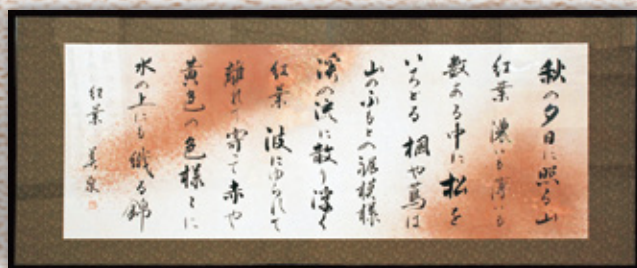 秋の夕日に照る山
紅葉 濃いも薄いも
数ある中に松を
いろどる楓や蔦は
山のふもとの裾模様
溪の流に散り浮く
紅葉 波にゆられて
離れて寄って赤や
黄色の色様々に
水の上にも織る錦
紅葉